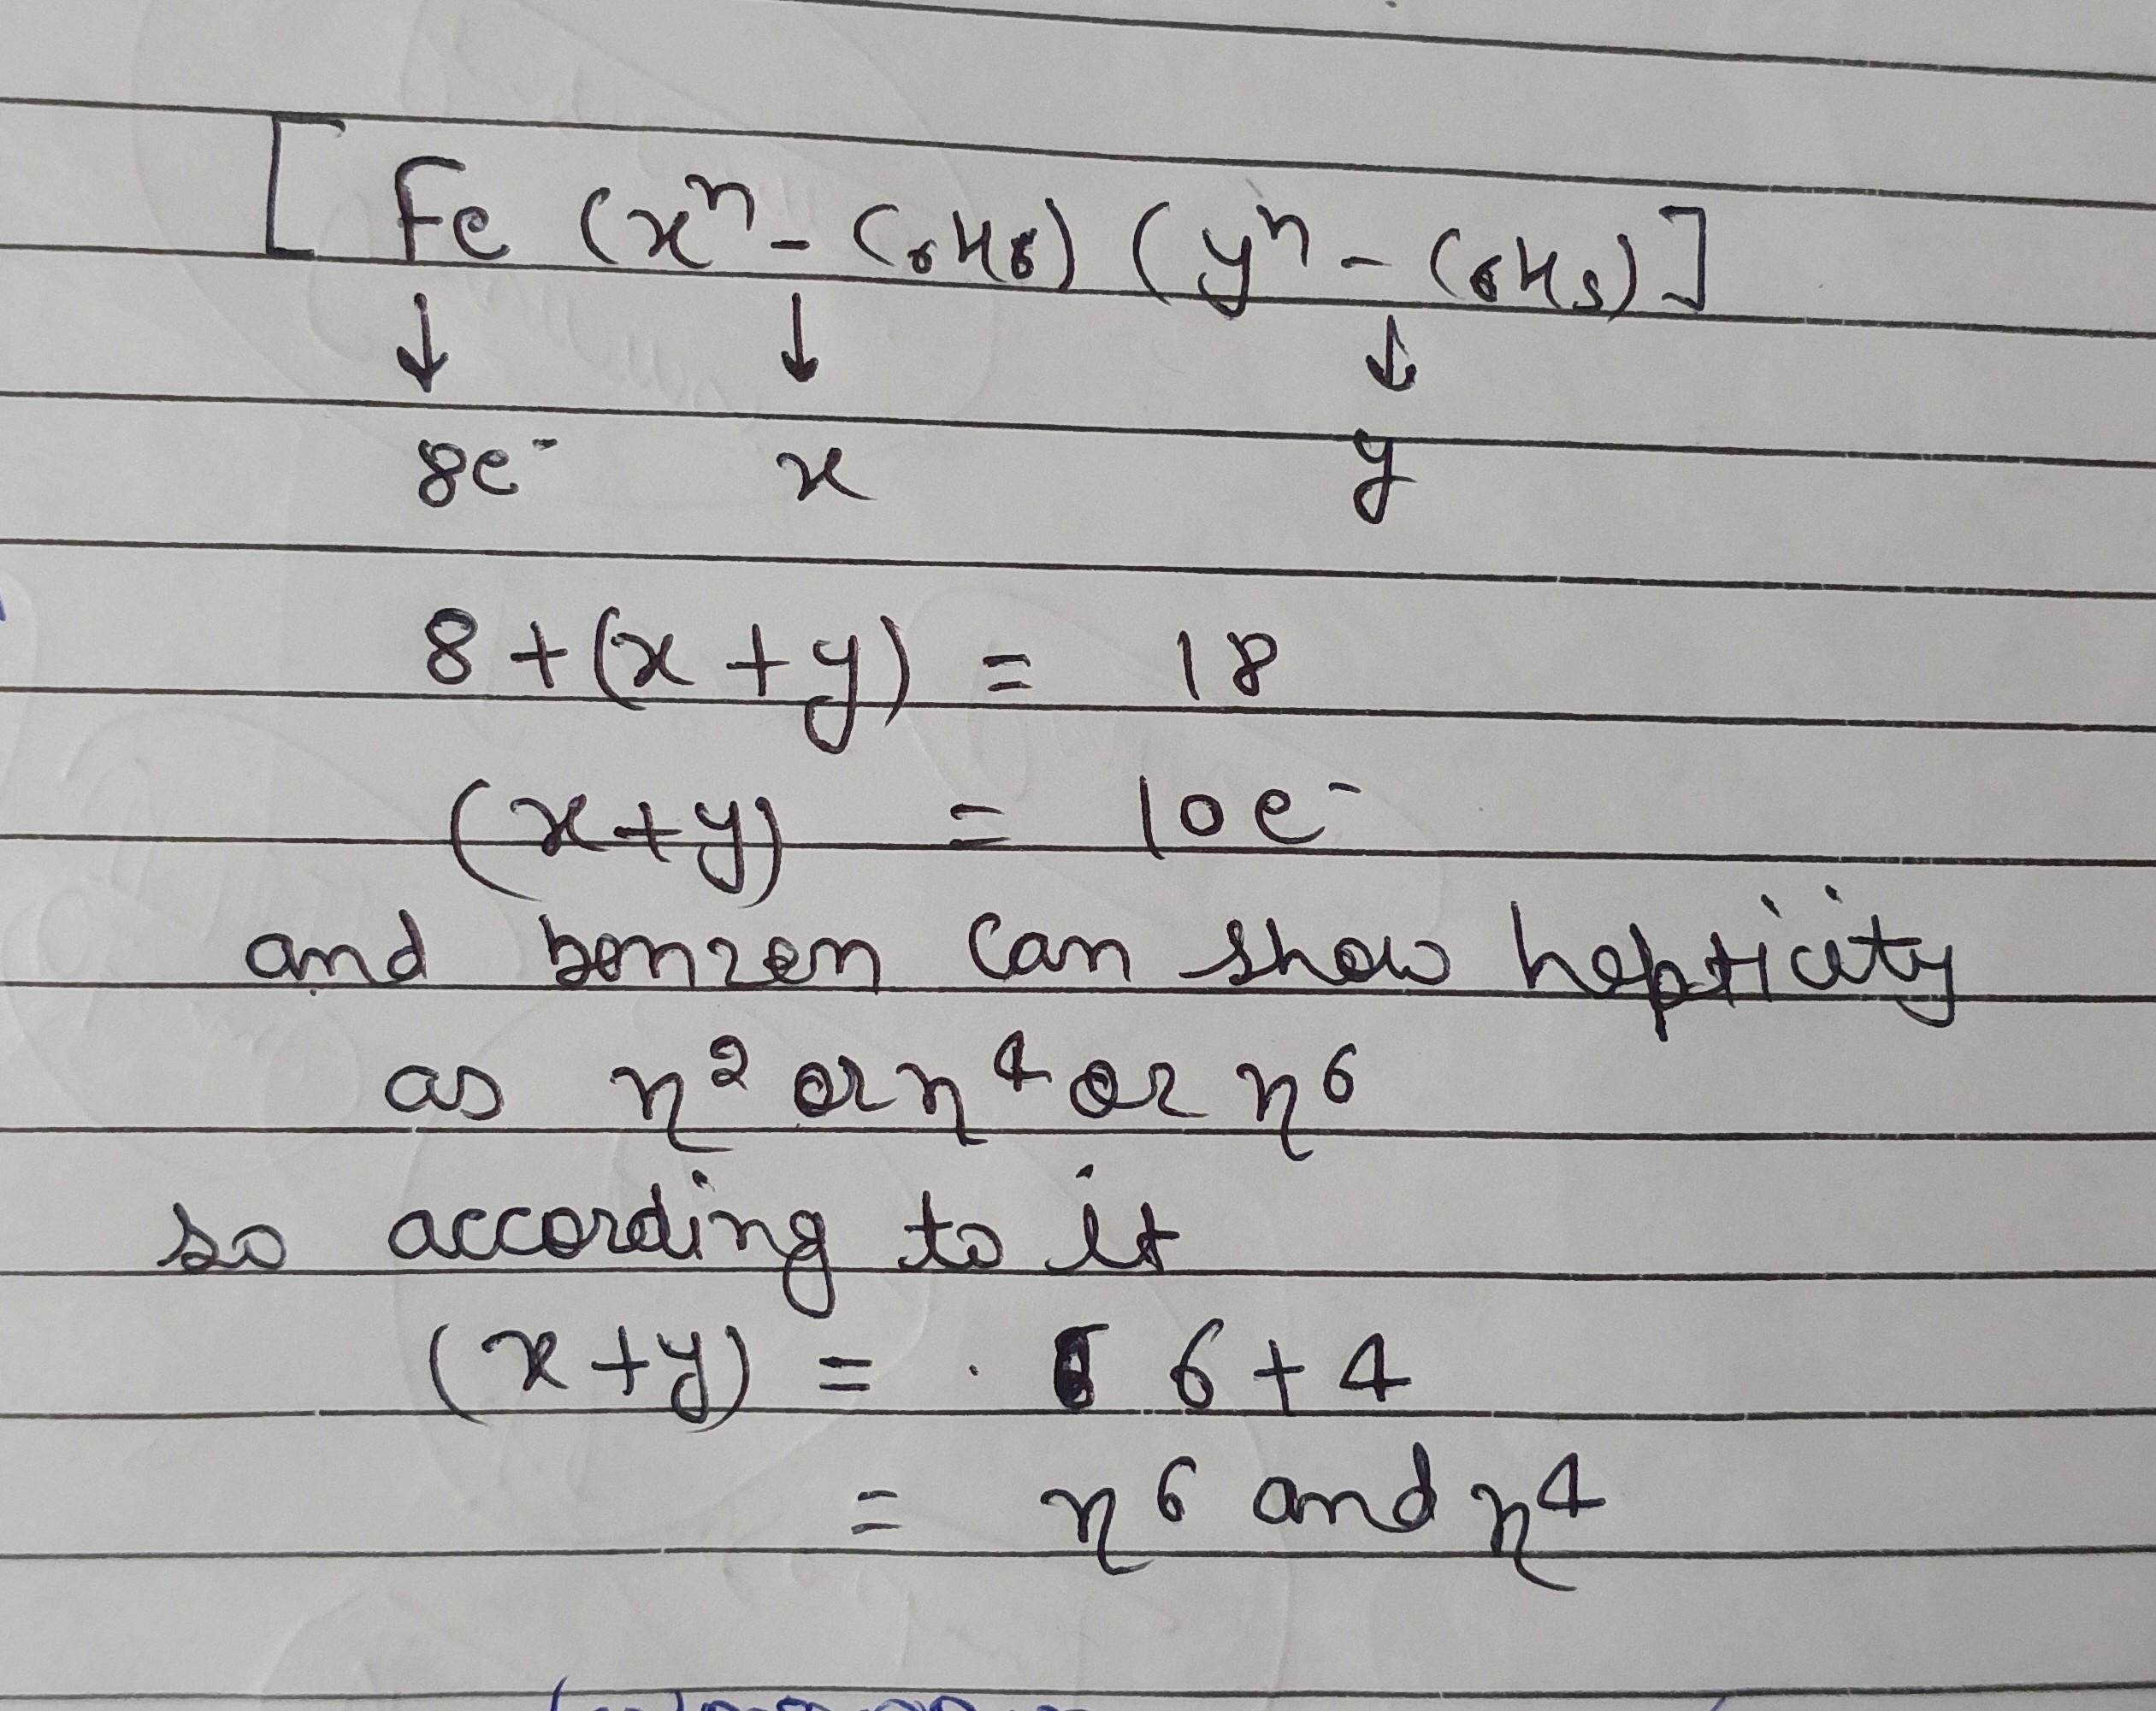 [Fe (xⁿ - C₆H₆) (yⁿ - C₆H₅)]
↓ ↓ ↓
8e⁻ x y
8 + (x + y) = 18
(x + y) = 10e⁻
and benzen can show hepticity
as η² or η⁴ or η⁶
so according to it
(x + y) = 6 + 4
= η⁶ and η⁴